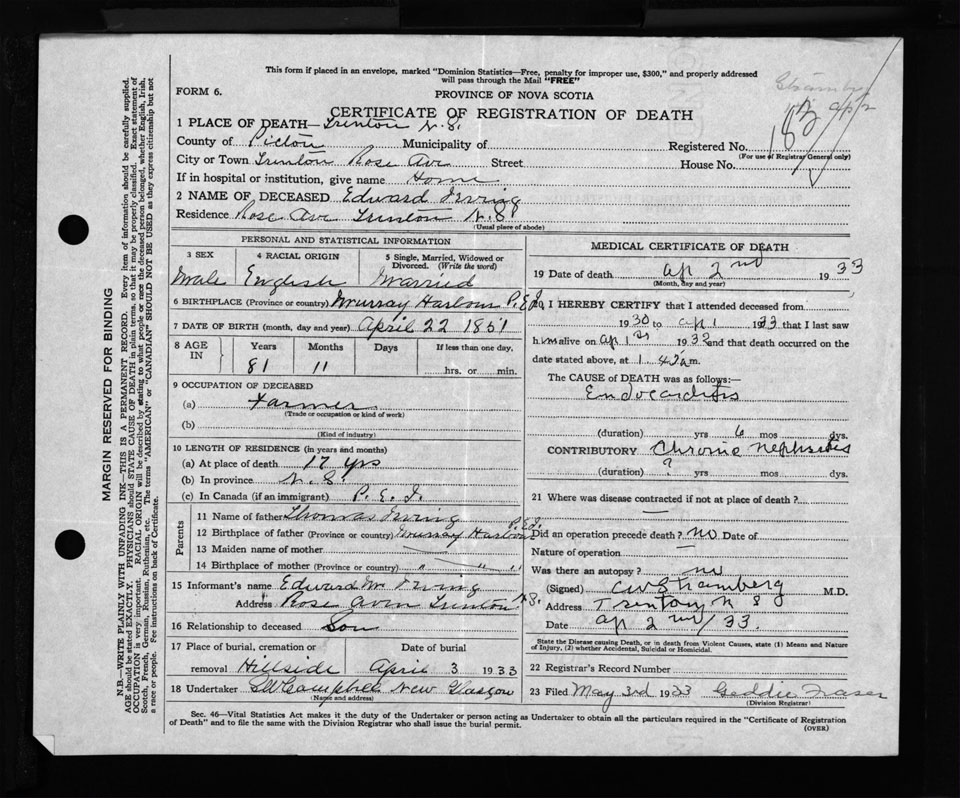 This form if placed in an envelope, marked "Dominion Statistics—Free, penalty for improper use, $300," and properly addressed
will pass through the Mail "FREE"
FORM 6.
PROVINCE OF NOVA SCOTIA
CERTIFICATE OF REGISTRATION OF DEATH
1 PLACE OF DEATH— Trenton N.S.
County of Pictou Municipality of Registered No.
(For use of Registrar General only)
City or Town Trenton Rose Ave Street House No.
If in hospital or institution, give name Home
2 NAME OF DECEASED Edward Irving
Residence Rose Ave Trenton N.S.
(Usual place of abode)
MARGIN RESERVED FOR BINDING
N.B.—WRITE PLAINLY WITH UNFADING INK—THIS IS A PERMANENT RECORD. Every item of information should be carefully supplied.
AGE should be stated EXACTLY. PHYSICIANS should STATE CAUSE OF DEATH in plain terms, so that it may be properly classified. Exact statement of
OCCUPATION is very important. RACIAL ORIGIN will be described by stating to what people or race the deceased person belonged, whether English, Irish,
Scotch, French, German, Russian, Ruthenian, etc. The terms "AMERICAN" or "CANADIAN" SHOULD NOT BE USED as they express citizenship but not
a race or people. See instructions on back of Certificate.
PERSONAL AND STATISTICAL INFORMATION
3 SEX 4 RACIAL ORIGIN 5 Single, Married, Widowed or
Divorced. (Write the word)
Male English Married
6 BIRTHPLACE (Province or country) Murray Harbour P.E.I.
7 DATE OF BIRTH (month, day and year) April 22 1851
8 AGE IN Years Months Days If less than one day,
81 11 hrs. or min.
9 OCCUPATION OF DECEASED
(a) Farmer
(Trade or occupation or kind of work)
(b)
(Kind of industry)
10 LENGTH OF RESIDENCE (in years and months)
(a) At place of death 17 yrs
(b) In province N.S.
(c) In Canada (if an immigrant) P.E.I.
Parents
11 Name of father Thomas Irving
12 Birthplace of father (Province or country) Murray Harbour P.E.I.
13 Maiden name of mother
14 Birthplace of mother (Province or country) " " "
15 Informant's name Edward M Irving
Address Rose Aven Trenton N.S.
16 Relationship to deceased Son
17 Place of burial, cremation or Date of burial
removal Hillside April 3 1933
18 Undertaker Campbell New Glasgow
(Name and address)
MEDICAL CERTIFICATE OF DEATH
19 Date of death Ap 2nd 1933
(Month, day and year)
20 I HEREBY CERTIFY that I attended deceased from
1930 to Ap 1 1933 that I last saw
him alive on Ap 1st 1933 and that death occurred on the
date stated above, at 1.42 a m.
The CAUSE OF DEATH was as follows:—
Endocarditis
(duration) yrs 6 mos dys.
CONTRIBUTORY Chronic Nephritis
(duration) ? yrs mos dys.
21 Where was disease contracted if not at place of death?
Did an operation precede death? no Date of
Nature of operation
Was there an autopsy? no
(Signed) M.D.
Address Trenton N S
Date Ap 2nd/33.
State the Disease causing Death, or in death from Violent Causes, state (1) Means and Nature
of Injury, (2) whether Accidental, Suicidal or Homicidal.
22 Registrar's Record Number
23 Filed May 3rd 1933 Geddie Fraser
(Division Registrar)
Sec. 46—Vital Statistics Act makes it the duty of the Undertaker or person acting as Undertaker to obtain all the particulars required in the "Certificate of Registration
of Death" and to file the same with the Division Registrar who shall issue the burial permit.
(OVER)